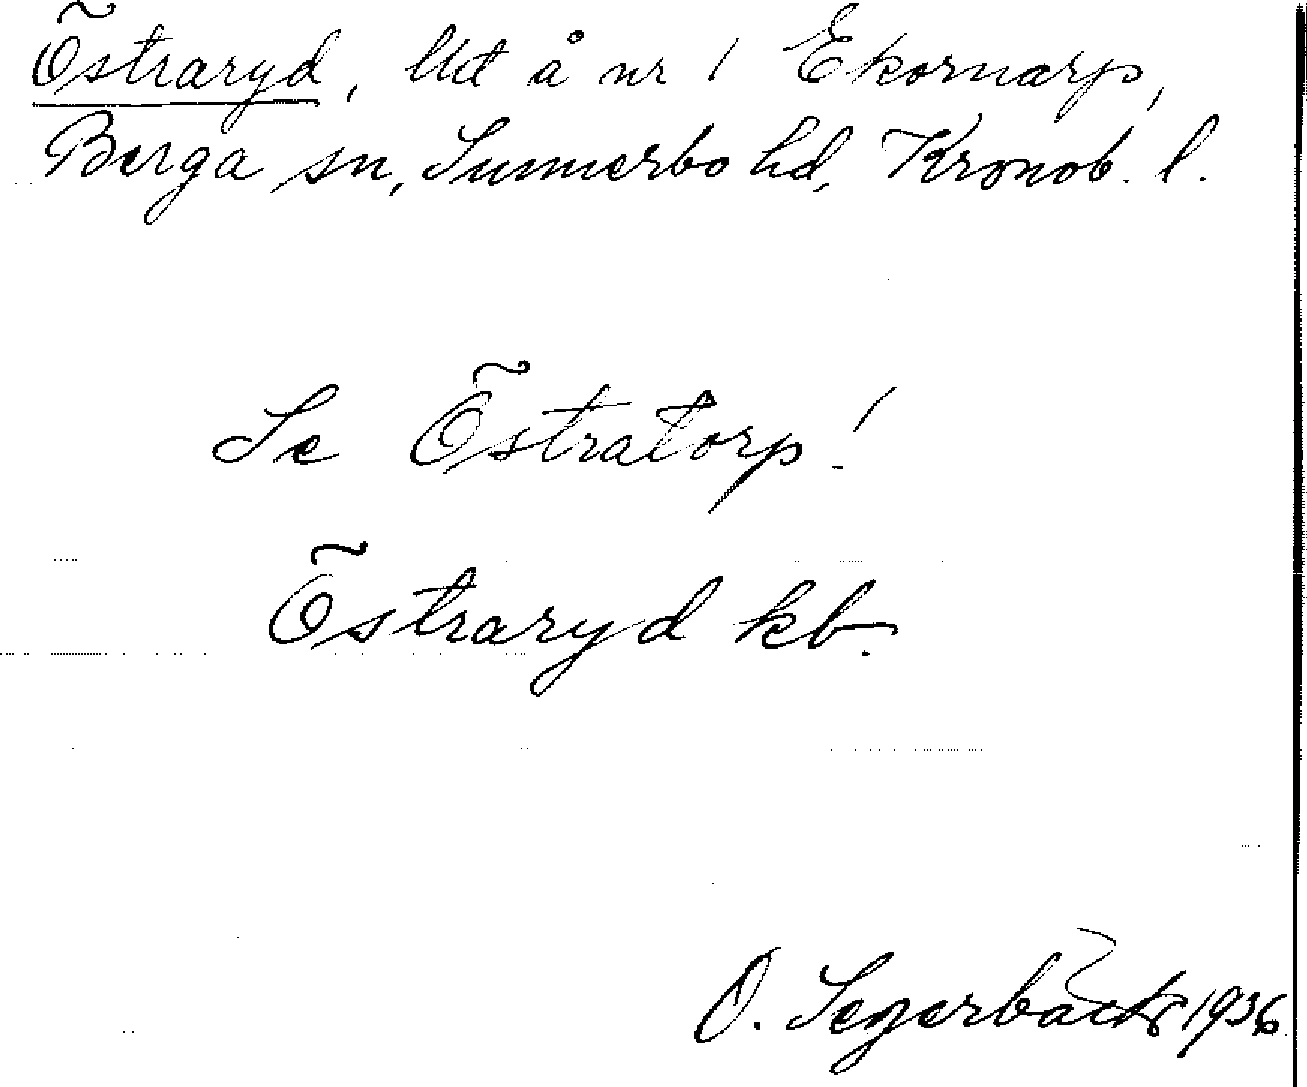 Östraryd, lht å nr 1 Ekornarp,
Berga sn, Sunnerbo hd, Kronob. l.
Se Östratorp!
Östraryd kb.
O. Segerbäck 1936